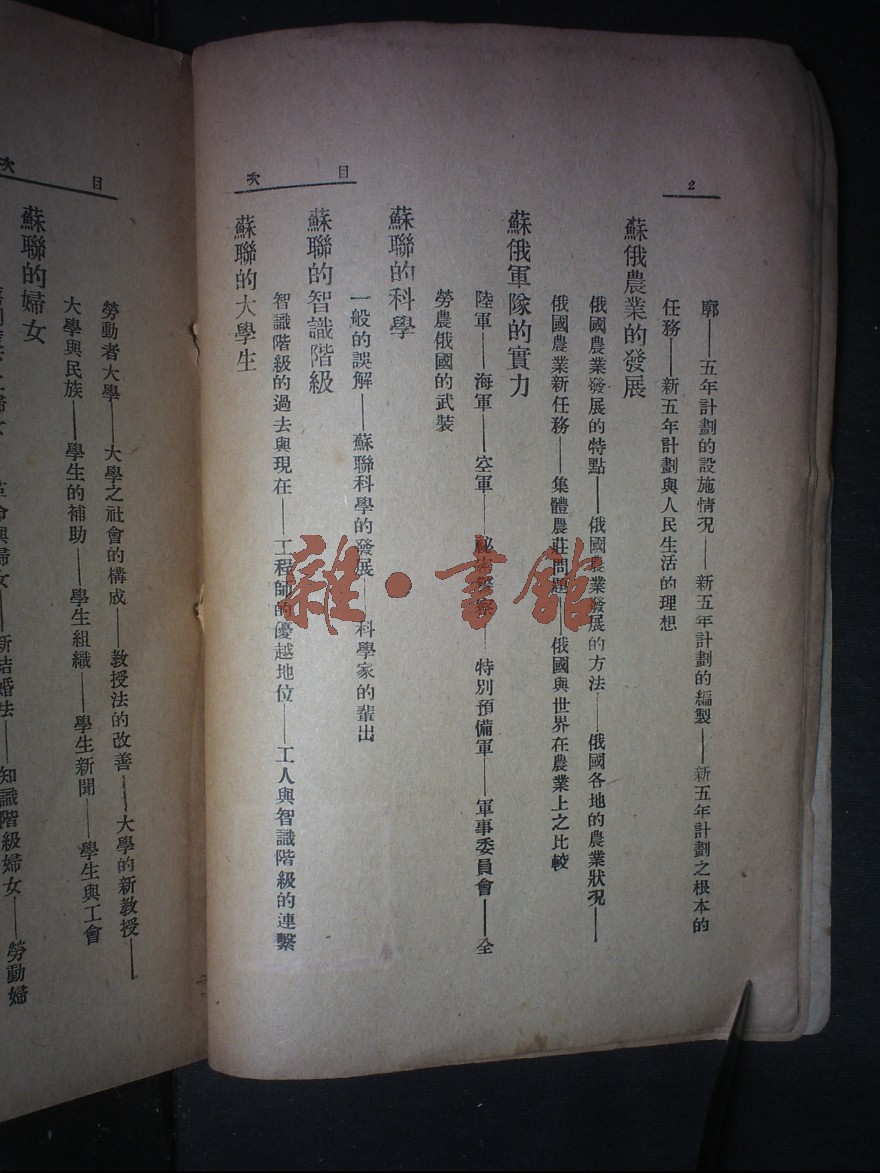 2
目次
廓——五年計劃的設施情况——新五年計劃的編製——新五年計劃之根本的
任務——新五年計劃與人民生活的理想
蘇俄農業的發展
俄國農業發展的特點——俄國農業發展的方法——俄國各地的農業狀况——
俄國農業新任務——集體農莊問題——俄國與世界在農業上之比較
蘇俄軍隊的實力
陸軍——海軍——空軍——秘密警察——特別預備軍——軍事委員會——全
勞農俄國的武裝
蘇聯的科學
一般的誤解——蘇聯科學的發展——科學家的輩出
蘇聯的智識階級
智識階級的過去與現在——工程師的優越地位——工人與智識階級的連繫
蘇聯的大學生
目次
勞動者大學——大學之社會的構成——教授法的改善——大學的新教授——
大學與民族——學生的補助——學生組織——學生新聞——學生與工會
蘇聯的婦女
婦女——革命與婦女——新結婚法——知識階級婦女——勞動婦
雜·書館